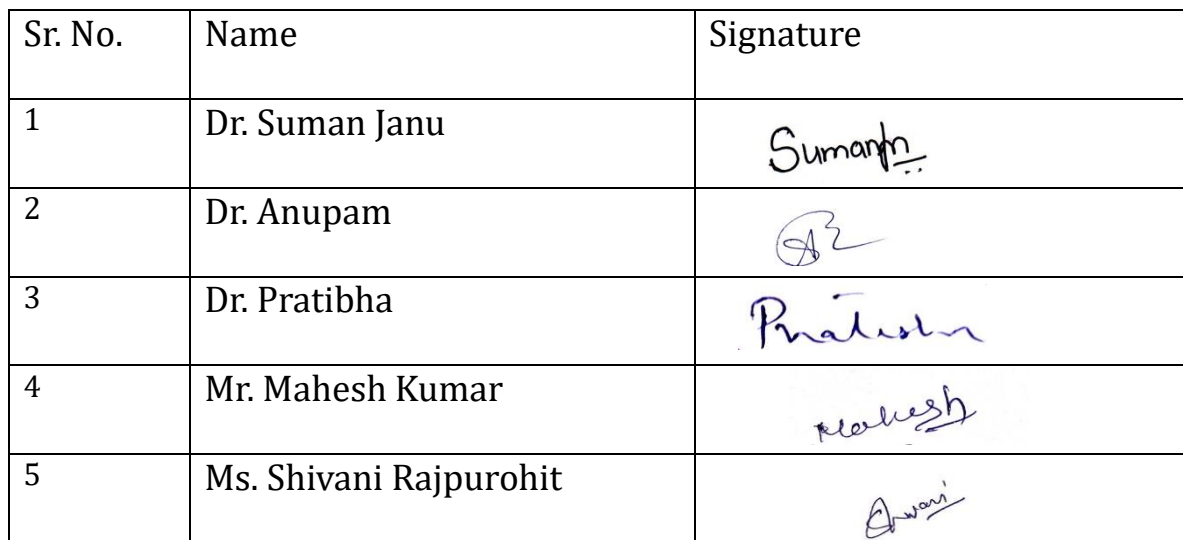 Sr. No. Name Signature
1 Dr. Suman Janu
2 Dr. Anupam
3 Dr. Pratibha
4 Mr. Mahesh Kumar Mahesh
5 Ms. Shivani Rajpurohit